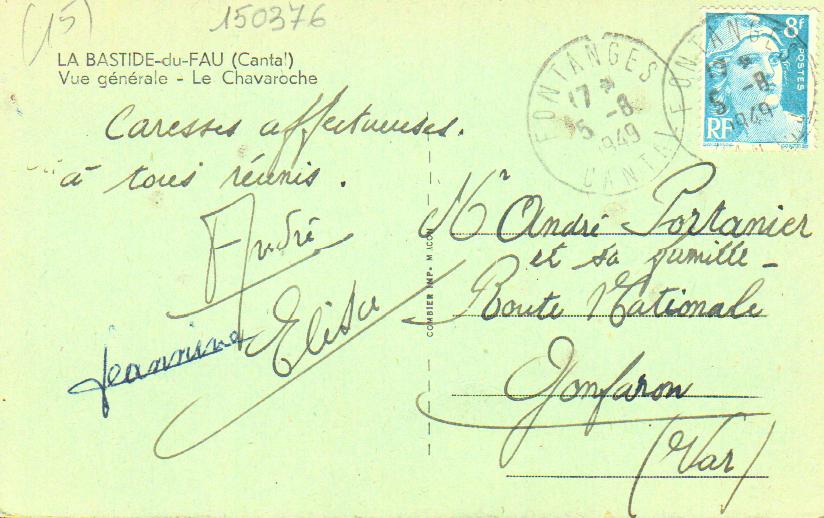 (15)
150376
LA BASTIDE-du-FAU (Cantal)
Vue générale - Le Chavaroche
Caresses affectueuses.
à tous réunis.
André
Elisa
Jeannine
COMBIER IMP. MACON
FONTANGES
17 *
5 -8
1949
CANTAL
FONTANGES
17 *
5 -8
1949
8f
POSTES
RF
Mr André Portanier
et sa famille -
Route Nationale
Gonfaron
(Var)